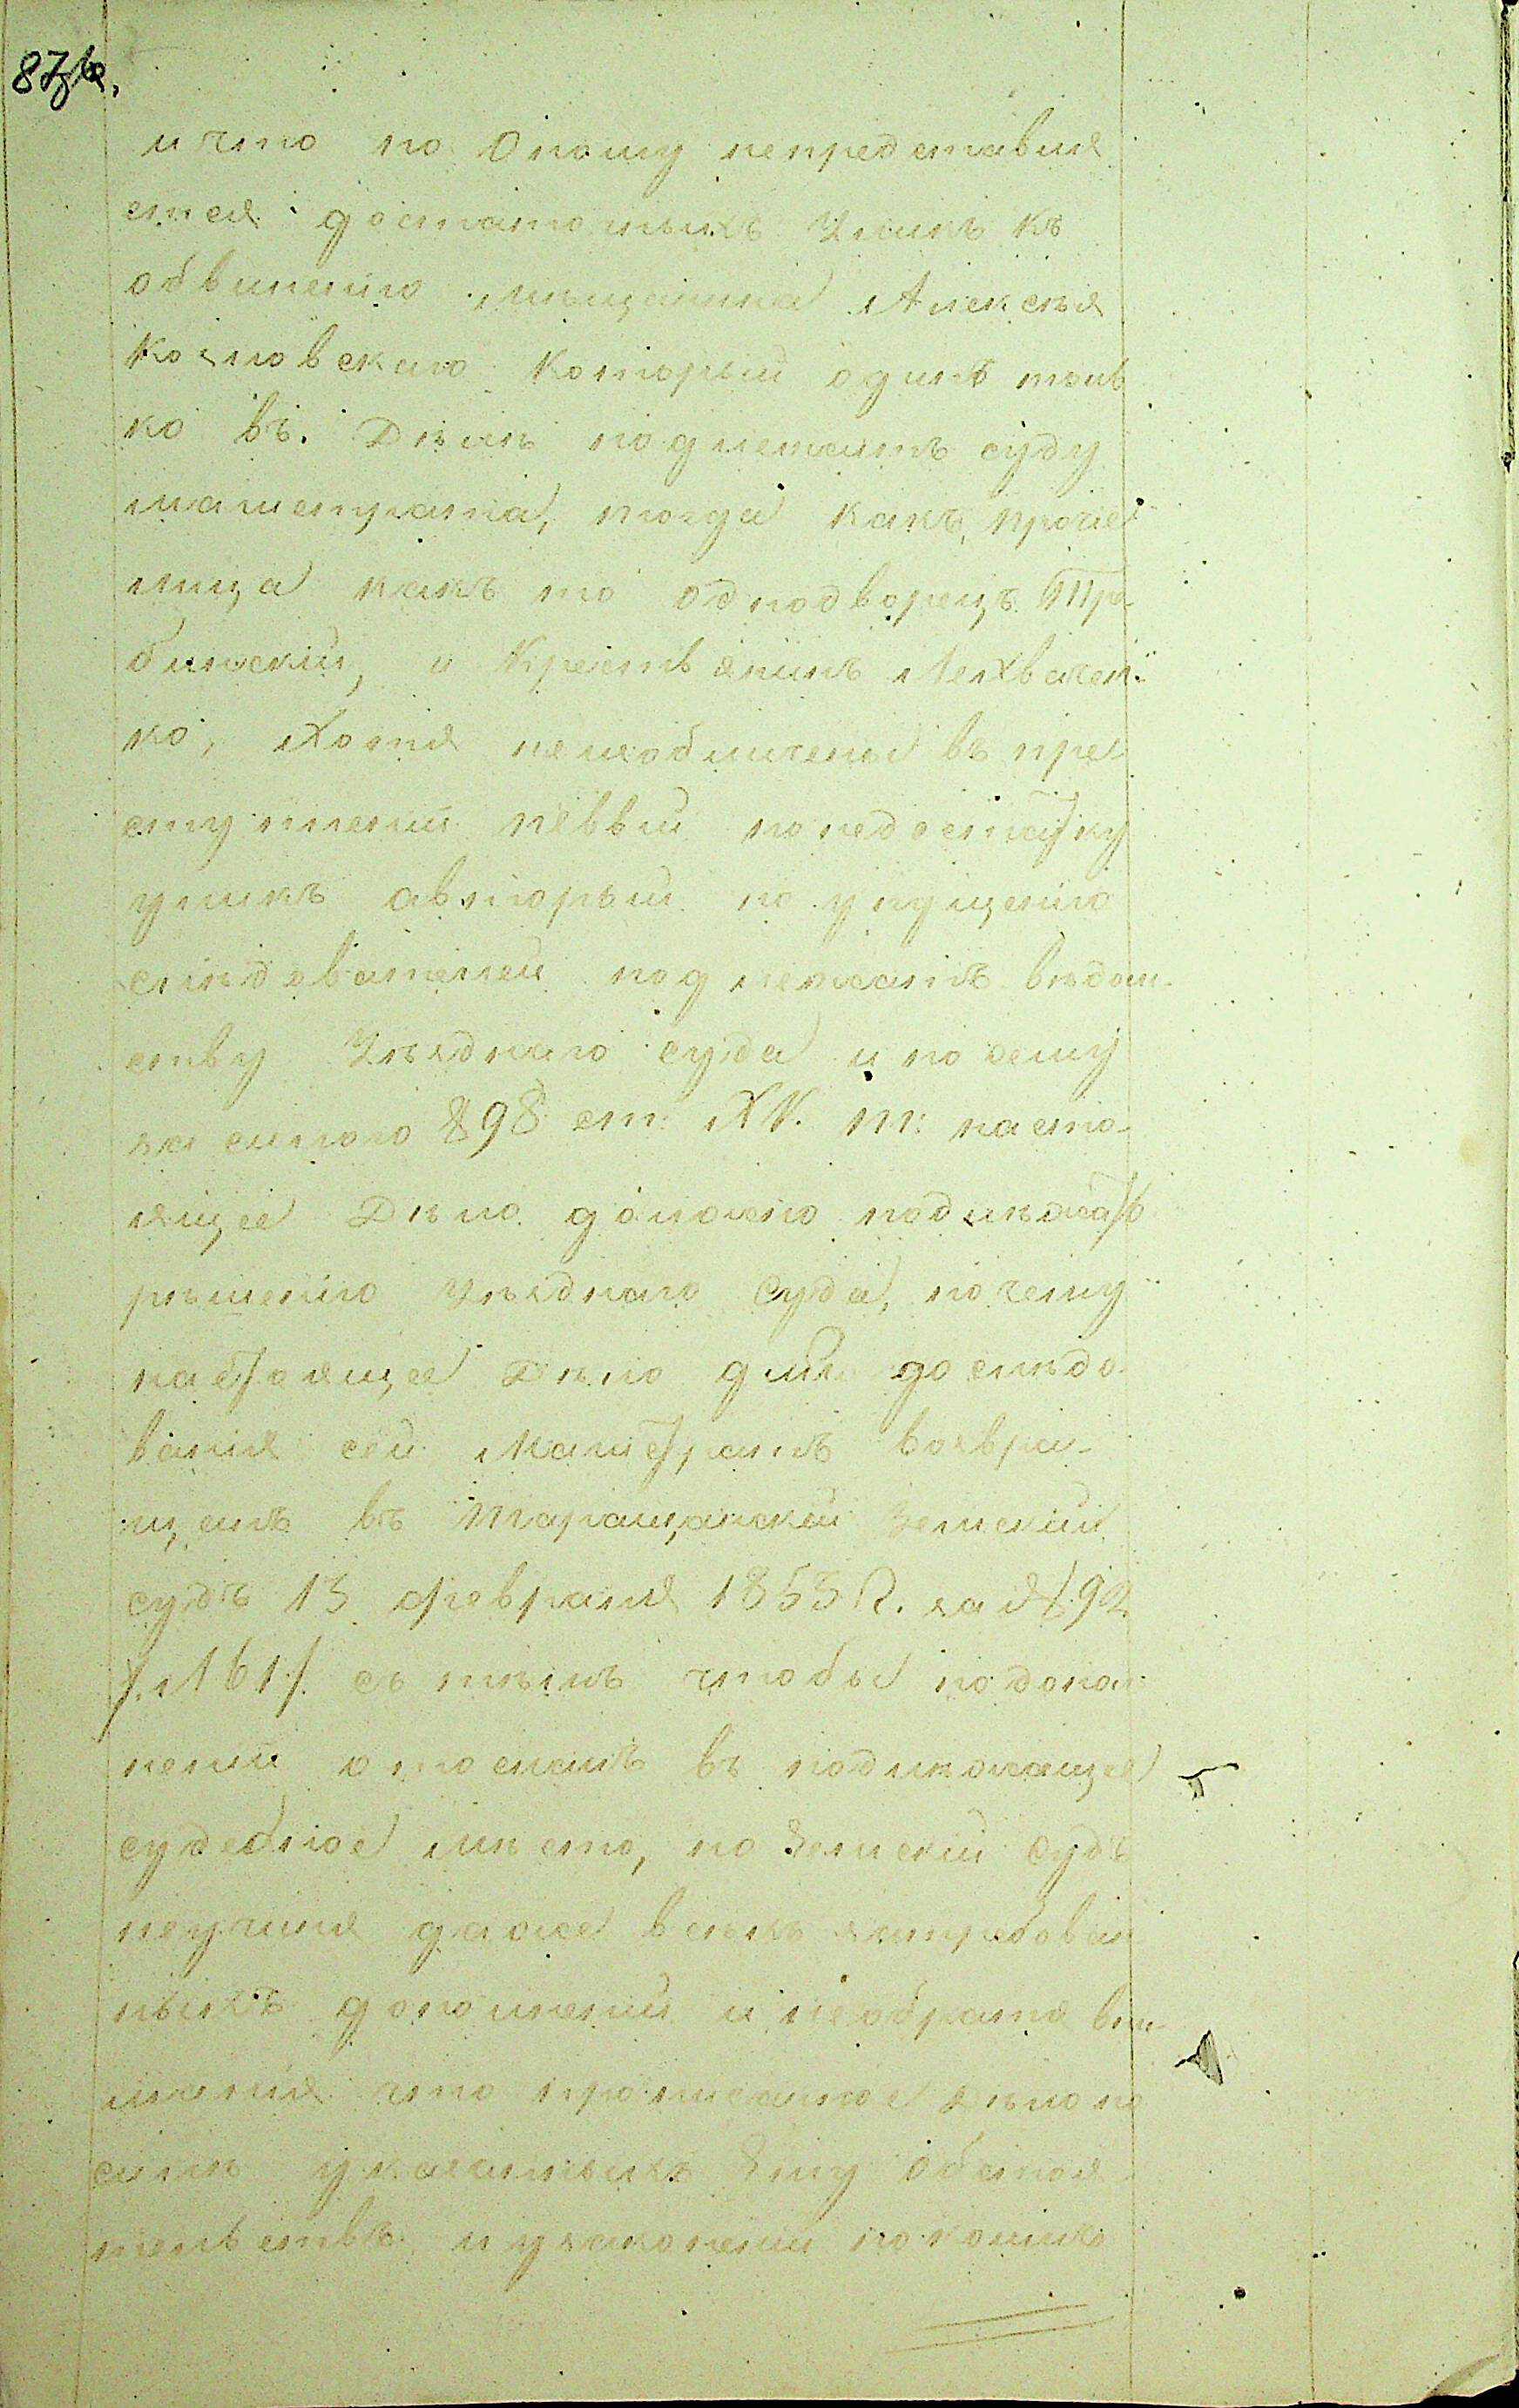 и что по оному непредставля
ется достаточныхъ уликъ къ
обвинению мѣщанина Алексѣя
Козловскаго который одинъ толь
ко въ Дѣлѣ подлежитъ суду
магистрата, тогда какъ прочие
лица какъ то однодворецъ
и Крестьянинъ
ко, хотя неизобличены въ пре
ступлении первый понедостатку
уликъ авторый по упущению
слѣдователей подлежатъ вѣдом-
ству Уѣзднаго суда и по сему
на силого 898 ст: XV. т: насто-
ящее Дѣло должно подлежать
рѣшению Уѣзднаго Суда, почему
настоящее Дѣло для дослѣдо
вания сей Магистратъ возвра-
щенъ въ Таращанский Земский
судъ 13 февраля 1853 г. за № 492
/. л 161 ./ съ тѣмъ чтобы подопол
нении отослать въ подлежащее
судебное мѣсто, но Земский Судъ
неучиня даже всѣхъ затребован
ныхъ дополнений и необратя вни-
мания что прописанное дѣло по
силѣ указанныхъ Ему обстоя
тельствъ и узаконений